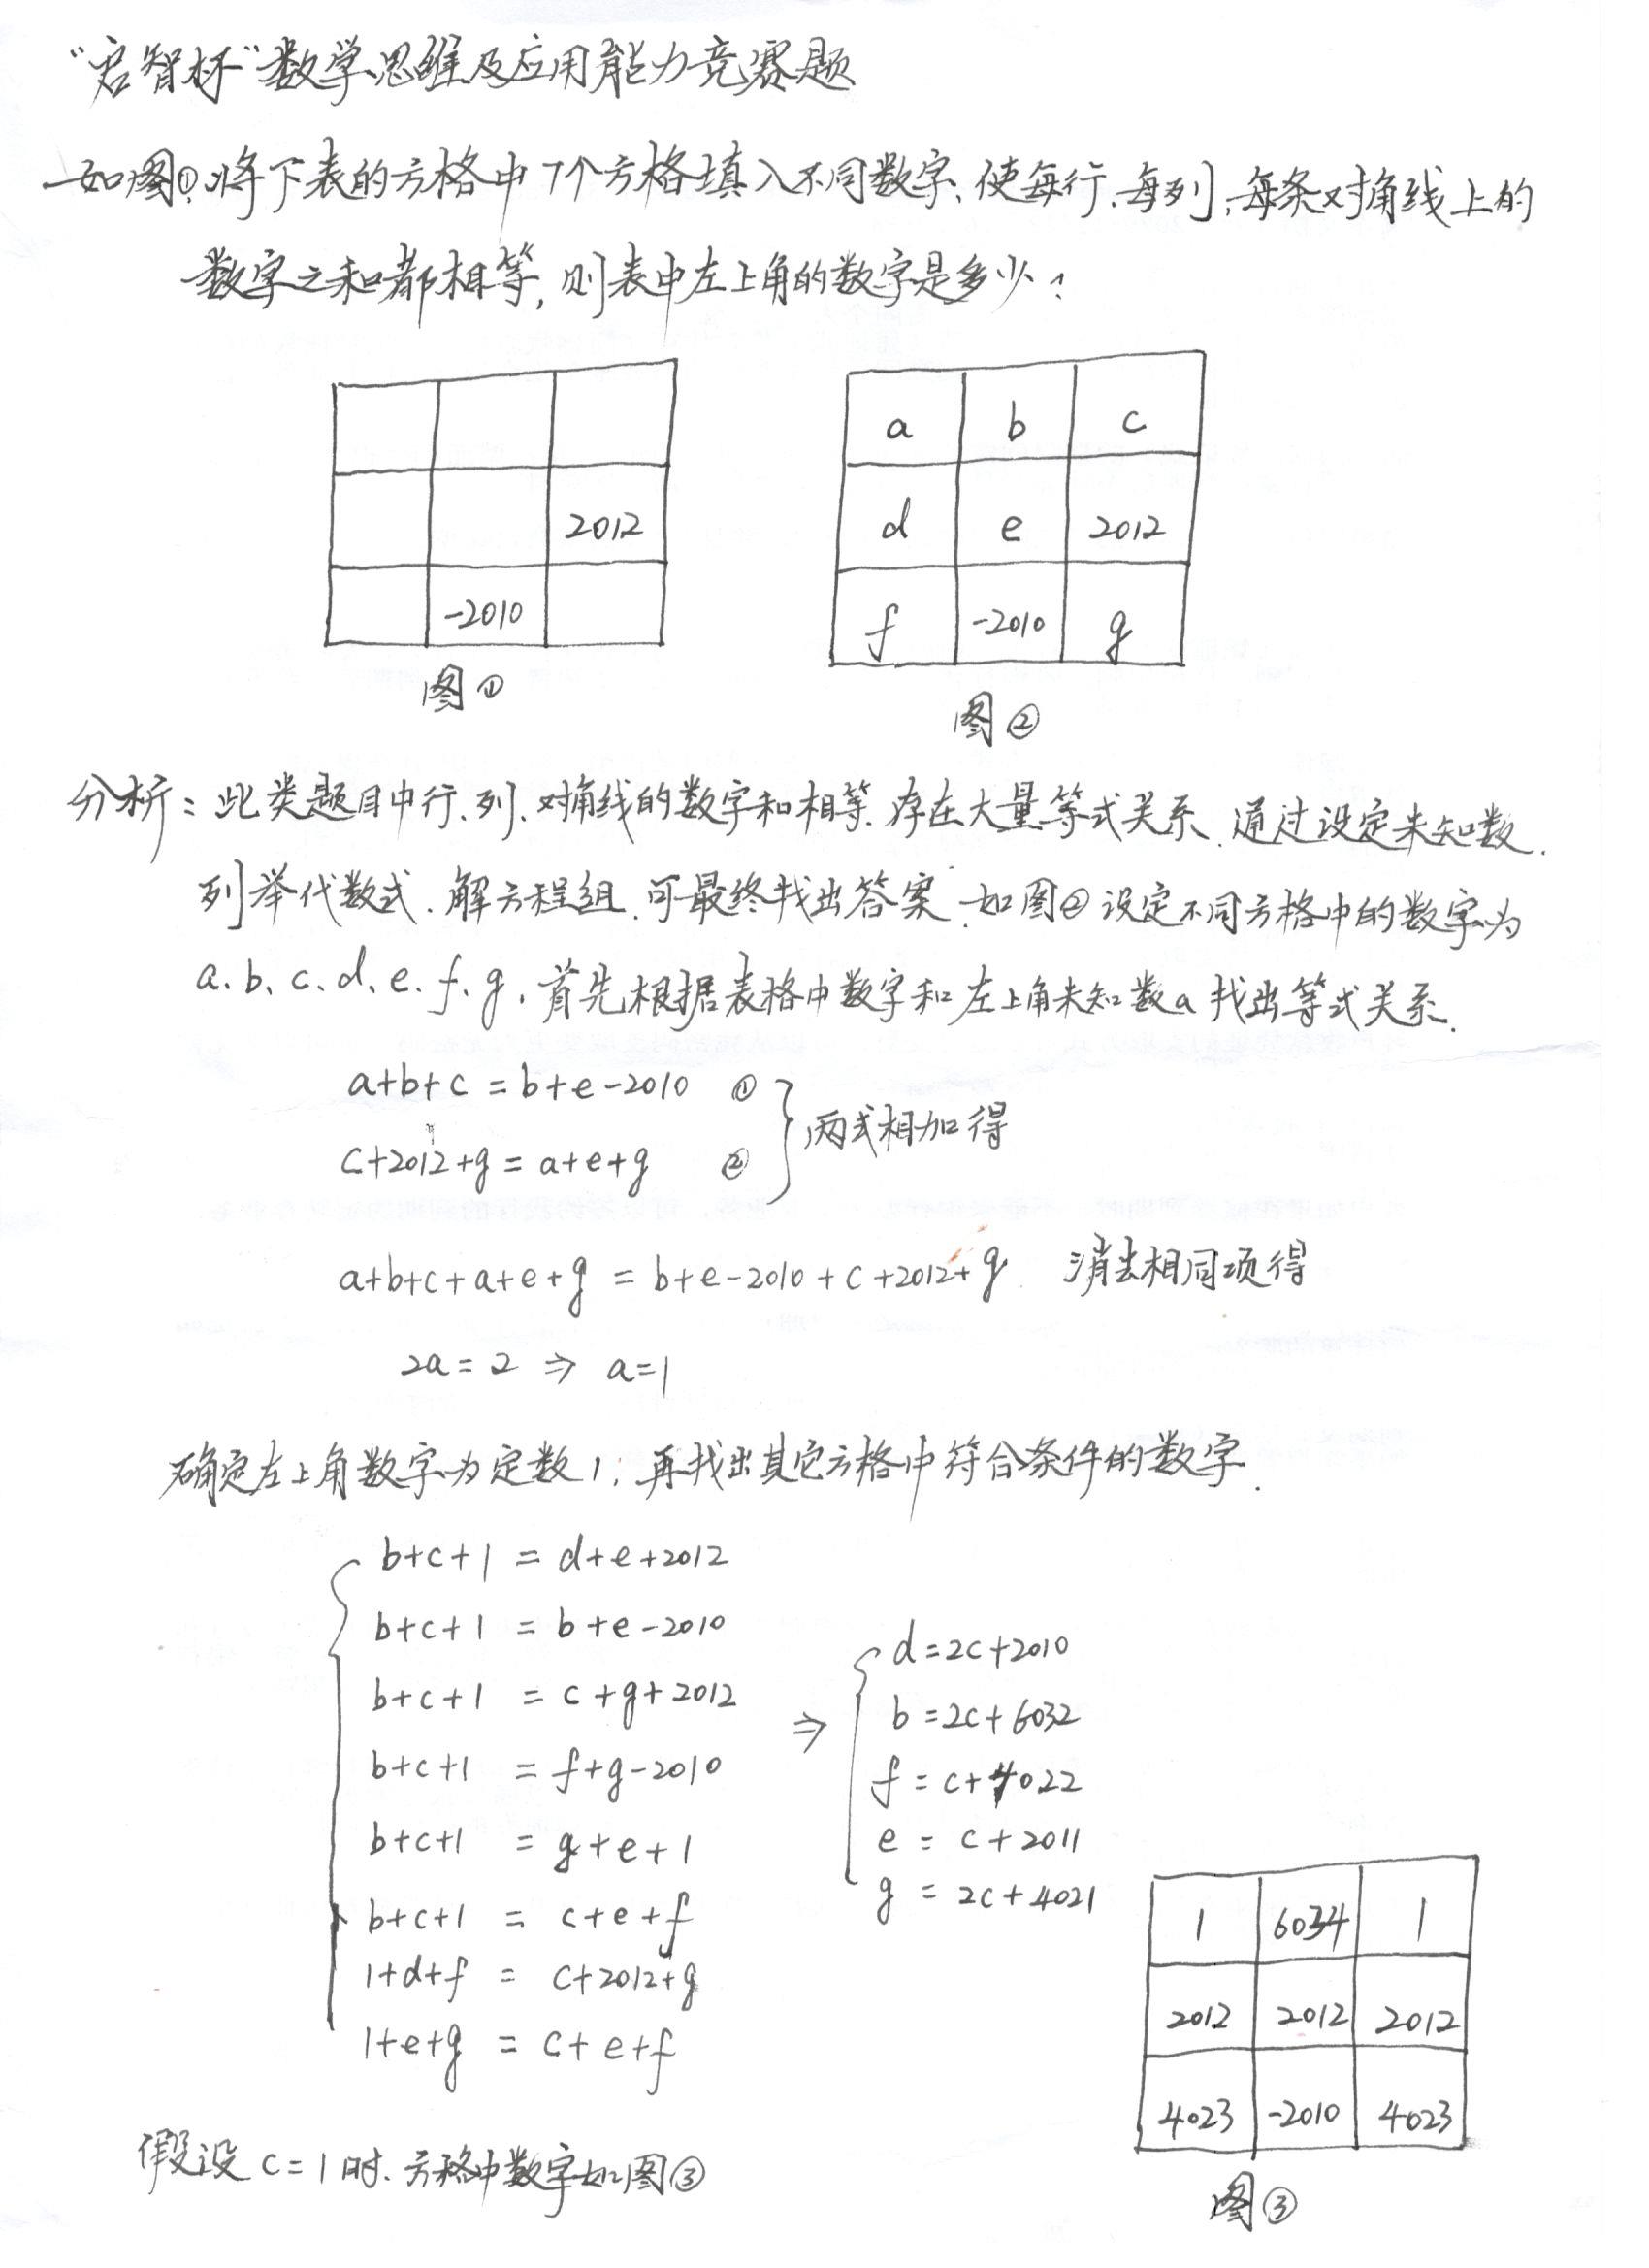 “启智杯”数学思维及应用能力竞赛题
如图①,将下表的方格中7个方格填入不同数字,使每行、每列,每条对角线上的
数字之和都相等,则表中左上角的数字是多少?
2012
-2010
图①
a b c
d e 2012
f -2010 g
图②
分析:此类题目中行、列、对角线的数字和相等.存在大量等式关系、通过设定未知数.
列举代数式、解方程组、可最终找出答案.如图②设定不同方格中的数字为
a、b、c、d、e、f、g,首先根据表格中数字和左上角未知数a找出等式关系.
a+b+c = b+e-2010 ①
c+2012+g = a+e+g ②
两式相加得
a+b+c+a+e+g = b+e-2010+c+2012+g 消去相同项得
2a=2 ⇒ a=1
确定左上角数字为定数1,再找出其它方格中符合条件的数字.
b+c+1 = d+e+2012
b+c+1 = b+e-2010
b+c+1 = c+g+2012
b+c+1 = f+g-2010
b+c+1 = g+e+1
b+c+1 = c+e+f
1+d+f = c+2012+g
1+e+g = c+e+f
⇒
d=2c+2010
b=2c+6032
f=c+4022
e=c+2011
g=2c+4021
1 6034 1
2012 2012 2012
4023 -2010 4023
图③
假设c=1时、方格中数字如图③